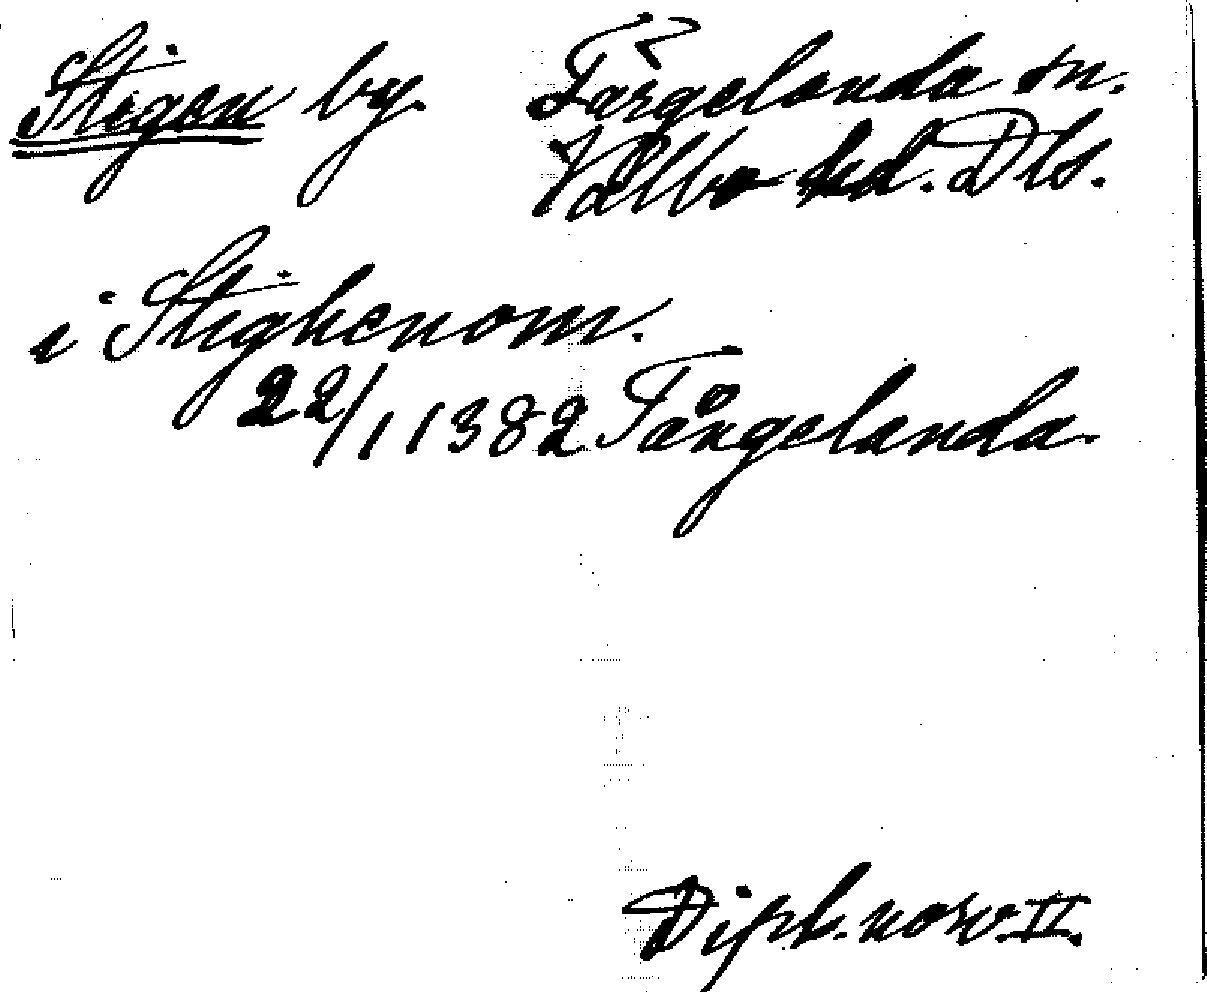 Stigen by. Färgelanda sn.
Valbo hd. Dls.
i Stighenom.
22/11 1382 Fårgelanda.
Dipl. norv. II.